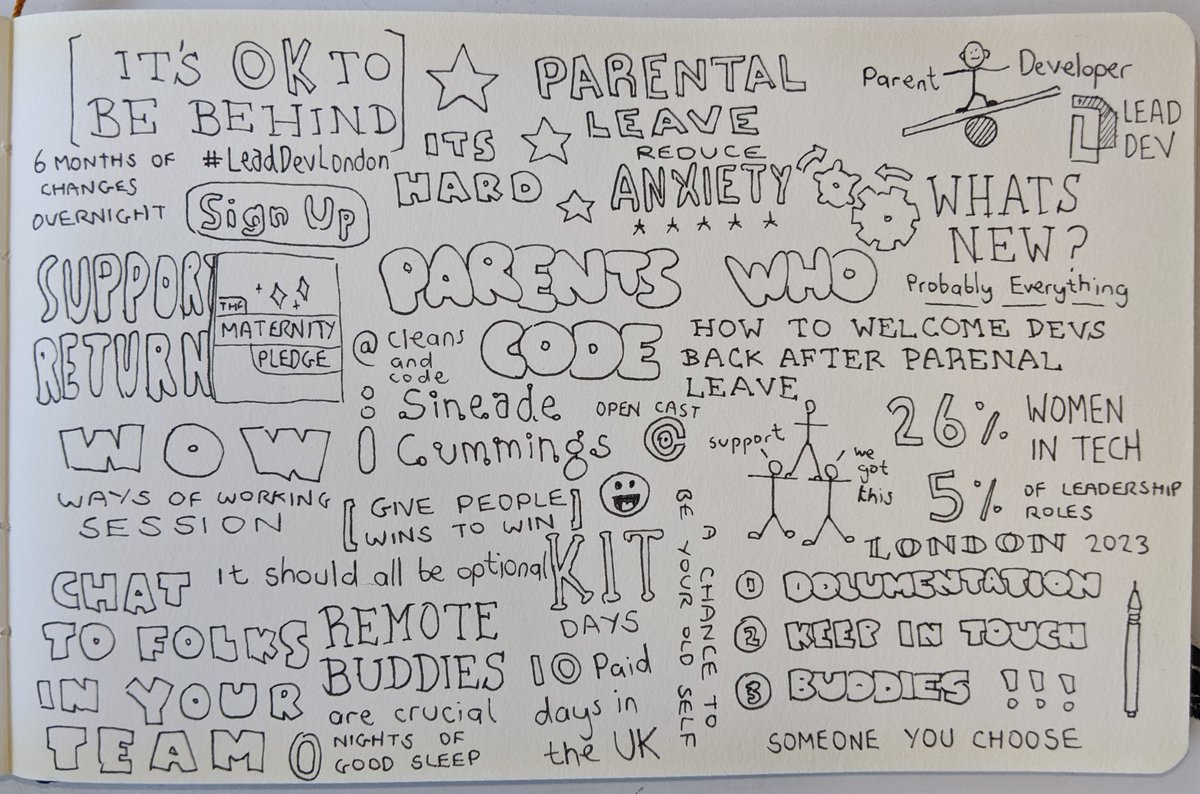 IT'S OK TO
BE BEHIND
6 MONTHS OF
CHANGES
OVERNIGHT
#LeadDevLondon
Sign Up
ITS
HARD
PARENTAL
LEAVE
REDUCE
ANXIETY
Parent
Developer
LEAD
DEV
WHATS
NEW?
Probably Everything
SUPPORT
RETURN
THE
MATERNITY
PLEDGE
PARENTS WHO
CODE
@cleans
and
code
HOW TO WELCOME DEVS
BACK AFTER PARENAL
LEAVE
Sineade
Cummings
OPEN CAST
support
we
got
this
26% WOMEN
IN TECH
5% OF LEADERSHIP
ROLES
LONDON 2023
WOW
WAYS OF WORKING
SESSION
[GIVE PEOPLE
WINS TO WIN]
It should all be optional
KIT
DAYS
10 Paid
days in
the UK
A CHANCE TO
BE YOUR OLD SELF
CHAT
TO FOLKS
IN YOUR
TEAM
REMOTE
BUDDIES
are crucial
0 NIGHTS OF
GOOD SLEEP
1 DOLUMENTATION
2 KEEP IN TOUCH
3 BUDDIES !!!
SOMEONE YOU CHOOSE